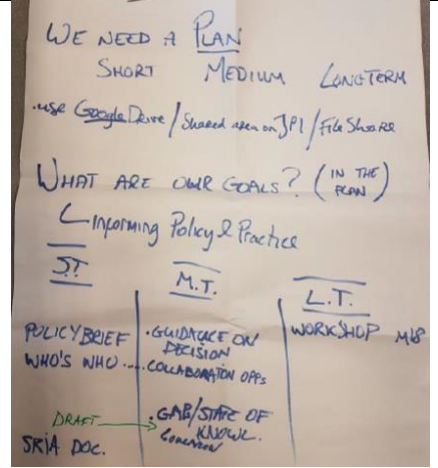 WE NEED A PLAN
SHORT MEDIUM LONG TERM
• use Google Drive / Shared area on JPI / File Share
WHAT ARE OUR GOALS? (IN THE PLAN)
Informing Policy & Practice
ST
M.T.
L.T.
POLICY BRIEF
WHO'S WHO ....
DRAFT
SRIA DOC.
• GUIDANCE ON
DECISION
COLLABORATION OPPs
• GAP/STATE OF
KNOWL.
WORKSHOP M18